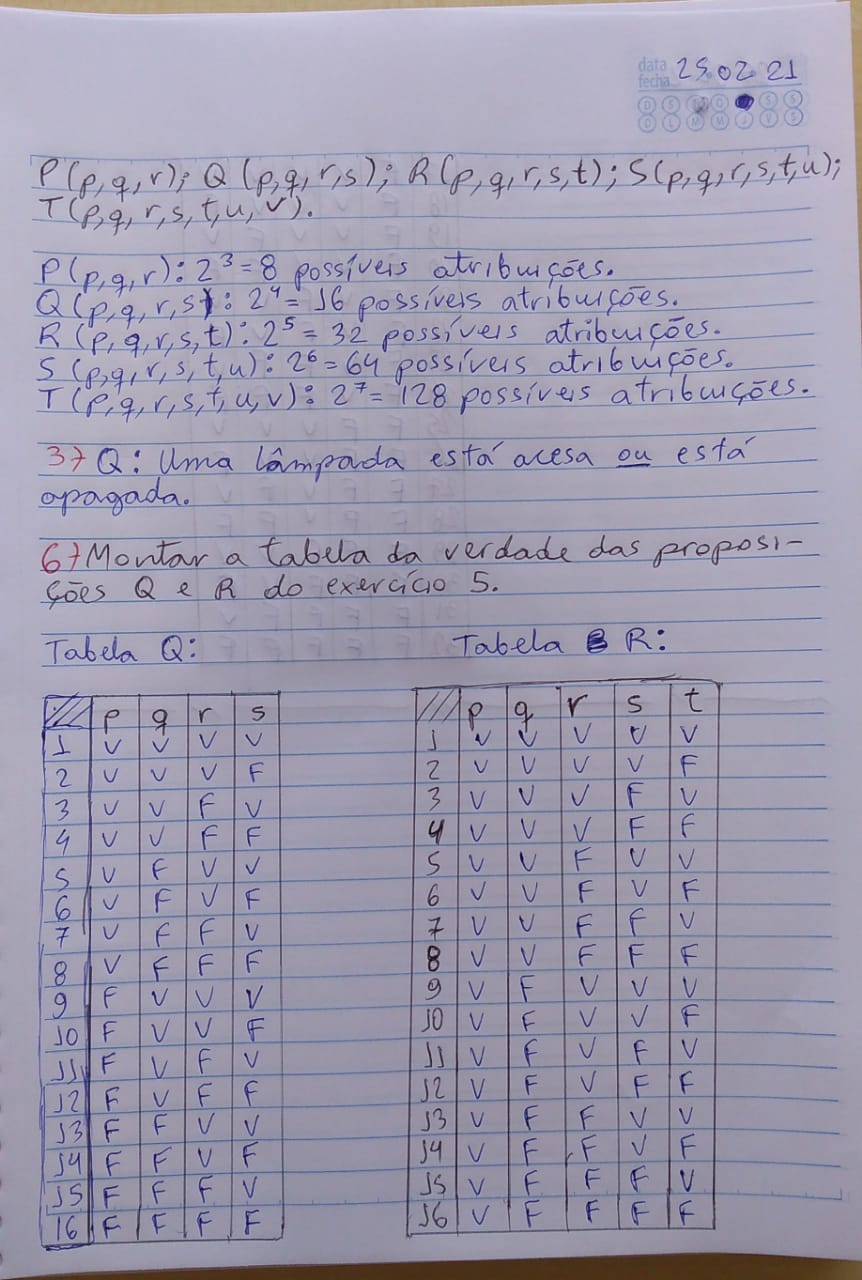 data
fecha 25.02.21
D S T Q Q S S
D L M M J V S
P(p,q,r); Q(p,q,r,s); R(p,q,r,s,t); S(p,q,r,s,t,u);
T(p,q,r,s,t,u,v).
P(p,q,r): 2³=8 possíveis atribuições.
Q(p,q,r,s): 2⁴=16 possíveis atribuições.
R(p,q,r,s,t): 2⁵=32 possíveis atribuições.
S(p,q,r,s,t,u): 2⁶=64 possíveis atribuições.
T(p,q,r,s,t,u,v): 2⁷=128 possíveis atribuições.
3) Q: Uma lâmpada está acesa ou está
apagada.
6) Montar a tabela da verdade das proposi-
ções Q e R do exercício 5.
Tabela Q:
p q r s
1 V V V V
2 V V V F
3 V V F V
4 V V F F
5 V F V V
6 V F V F
7 V F F V
8 V F F F
9 F V V V
10 F V V F
11 F V F V
12 F V F F
13 F F V V
14 F F V F
15 F F F V
16 F F F F
Tabela R:
p q r s t
1 V V V V V
2 V V V V F
3 V V V F V
4 V V V F F
5 V V F V V
6 V V F V F
7 V V F F V
8 V V F F F
9 V F V V V
10 V F V V F
11 V F V F V
12 V F V F F
13 V F F V V
14 V F F V F
15 V F F F V
16 V F F F F